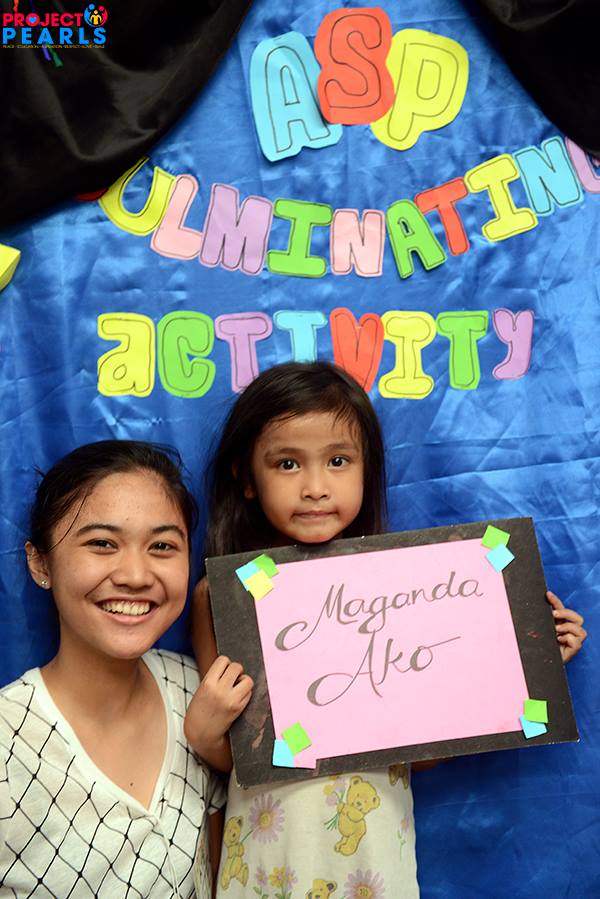 PROJECT
PEARLS
PEACE • EDUCATION • ASPIRATION • RESPECT • LOVE • SMILE
ASP
CULMINATING
ACTIVITY
Maganda
Ako